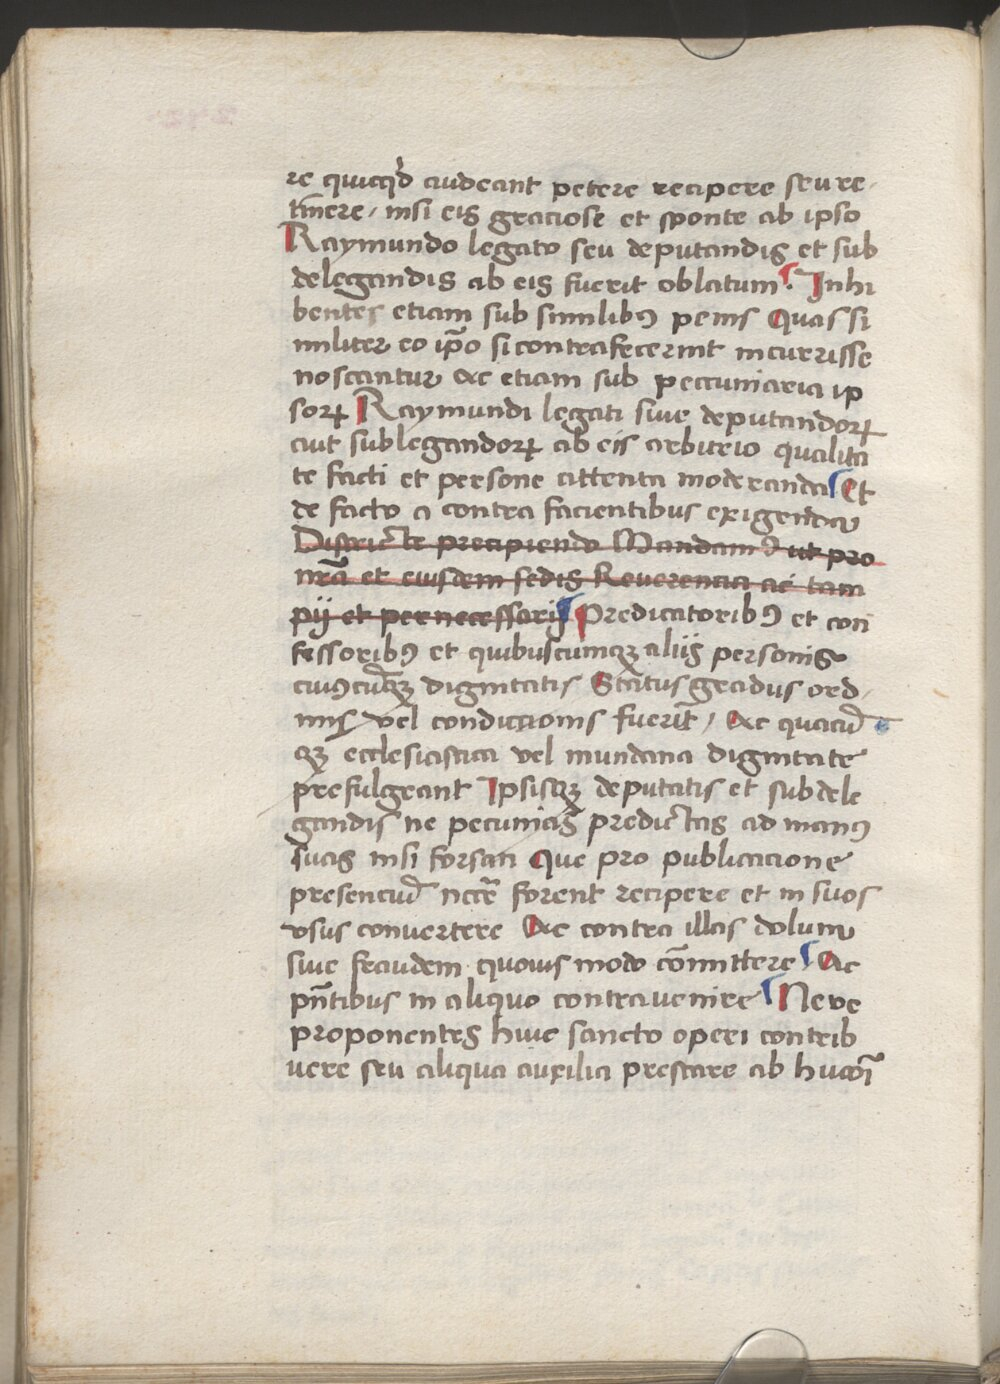 re quicqͣd audeant petere recipere seu re-
tinere / nisi eis graciose et sponte ab ipso
Raymundo legato seu deputandis et sub
delegandis ab eis fuerit oblatum. Inhi
bentes etiam sub similibꝰ penis Quas si
militer eo ip̄o si contrafecerint incurrisse
noscantur Ac etiam sub peccuniaria ip
soꝝ Raymundi legati siue deputandoꝝ
aut sublegandoꝝ ab eis arbitrio qualita
te facti et persone attenta moderanda Et
de facto a contra facientibus exigenda
Districte precipiendo Mandamꝰ ut pro
nr̄a et eiusdem sedis Reuerencia ac tam
pij et pernecessarij Predicatoribꝰ et con
fessoribꝰ et quibuscumqꝫ alijs personis
cuiꝰcūqꝫ dignitatis Status gradus ord-
inis vel condicionis fuerīt / Ac quacū
qꝫ ecclesiastica vel mundana dignitate
prefulgeant Ipsisqꝫ deputatis et subdele
gandis ne pecunias predictas ad manꝰ
suas nisi forsan Que pro publicacione
presenciū nccē̄ forent recipere et in suos
vsus conuertere Ac contra illas dolum
siue fraudem quouis modo cōmittere Ac
pn̄tibus in aliquo contrauenire Neve
proponentes huic sancto operi contrib
uere seu aliqua auxilia prestare ab huōi